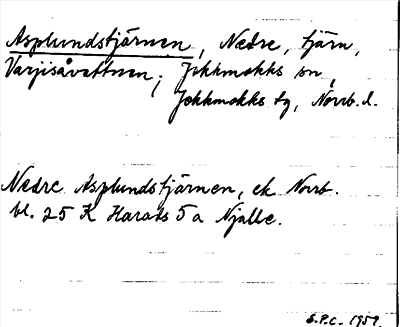 Asplundstjärnen, Nedre, tjärn,
Varjisåvattnen; Jokkmokks sn,
Jokkmokks tg, Norrb. l.
Nedre Asplundstjärnen, ek Norrb.
bl. 25 K Harads 5 a Njalle.
S.P.C. 1959.